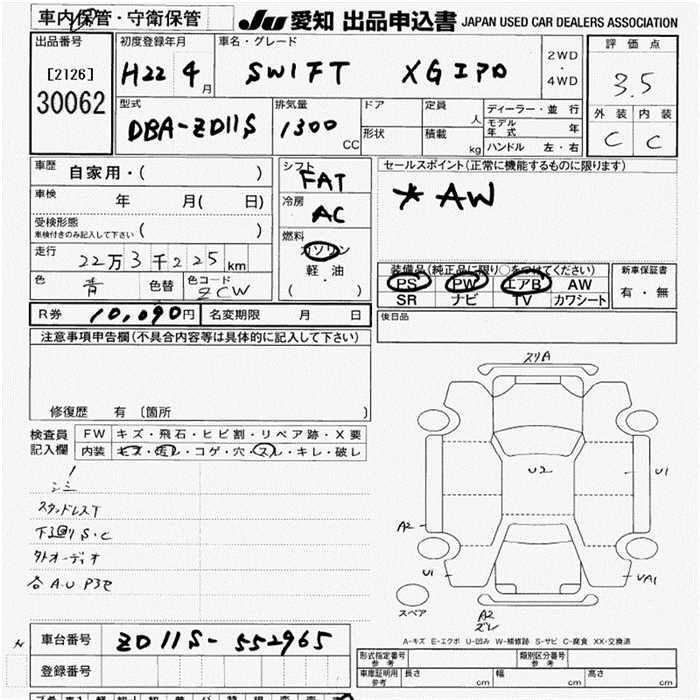 車内保管・守衛保管
JU 愛知 出品申込書 JAPAN USED CAR DEALERS ASSOCIATION
出品番号
[2126]
30062
初度登録年月
H22 4月
車名・グレード
SWIFT XG
2WD
・
4WD
評価点
3.5
外装 内装
C C
型式
DBA-ZD11S
排気量
1300 CC
ドア
形状
定員 人
積載 kg
ディーラー・並行
モデル年式 年
ハンドル 左・右
車歴 自家用・( )
車検 年 月( 日)
受検形態
車検付きのみ記入して下さい ( )
走行 22万3千225km
色 青 色替 色コード ZCW
シフト
FAT
冷房
AC
燃料
ガソリン
・
軽油
・
( )
セールスポイント(正常に機能するものに限ります)
* AW
装備品(純正品に限り○をつけてください)
PS PW エアB AW
SR ナビ TV カワシート
新車保証書
有・無
後日品
R券 10,090円 名変期限 月 日
注意事項申告欄(不具合内容等は具体的に記入して下さい)
修復歴 有 [箇所 ]
検査員
記入欄
FW キズ・飛石・ヒビ割・リペア跡・X要
内装 キズ・汚レ・コゲ・穴・スレ・キレ・破レ
シミ
スタッドレスT
下廻りS・C
外オーディオ
A.U P3セ
スリA
U2
U1
A2
U1
VA1
スペア
A2
ズレ
A-キズ E-エクボ U-凹み W-補修跡 S-サビ C-腐食 XX-交換済
車台番号 ZD11S-552965
登録番号
形式指定番号
参考
類別区分番号
参考
車庫証明用
参考
長さ cm
幅 cm
高さ cm